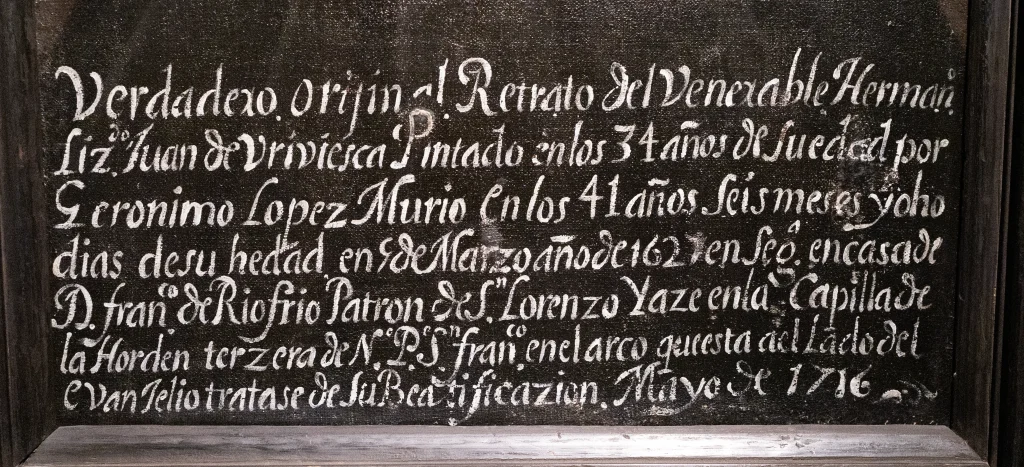 Verdadero. orijinal Retrato del Venerable Herman.º
Liz.do Juan de Vriviesca Pintado en los 34 años de su edad por
Geronimo Lopez Murio en los 41 años seis meses y oho
dias de su hedad en 5 de Marzo año de 1627 en Seg.ª en casa de
D. fran.co de Riofrio Patron de S.n Lorenzo Yaze en la Capilla de
la Horden terzera de N.º P.e S.n fran.co en el arco que esta del Lado del
evanjelio tratase de su Beatificazion. Mayo de 1716